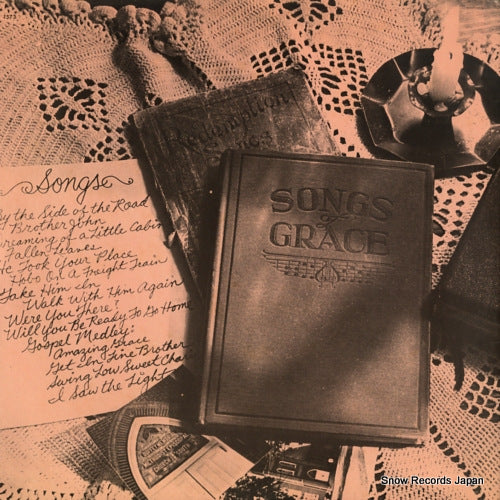 1573
Redemption
Songs
SONGS
of
GRACE
Songs
By the Side of the Road
Brother John
Dreaming of a Little Cabin
Fallen Leaves
He Took Your Place
Hobo On A Freight Train
Take Him In
Walk With Him Again
Were You There?
Will You Be Ready To Go Home
Gospel Medley:
Amazing Grace
Get In Line Brother
Swing Low Sweet Chariot
I Saw the Light
Snow Records Japan